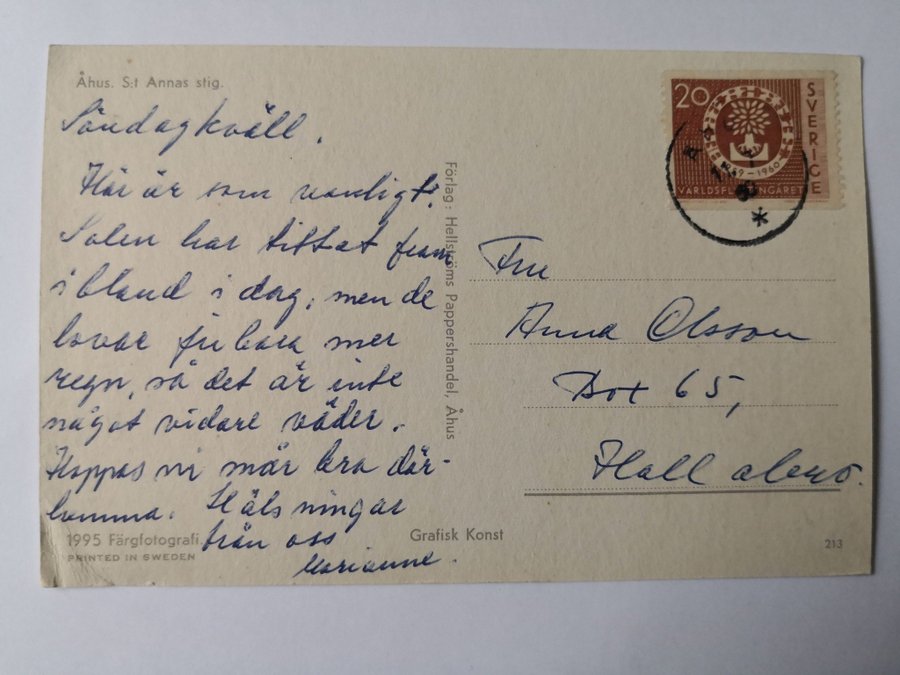 Åhus. S:t Annas stig.
Söndagkväll.
Här är som vanligt.
Solen har tittat fram
ibland i dag, men de
lovar ju bara mer
regn, så det är inte
något vidare väder.
Hoppas ni mår bra där-
hemma. Hälsningar
från oss
Marianne.
1995 Färgfotografi.
PRINTED IN SWEDEN
Förlag: Hellströms Pappershandel, Åhus
Grafisk Konst
213
20
SVERIGE
1959-1960
VÄRLDSFLYKTINGÅRET
Fru
Anna Olsson
Box 65,